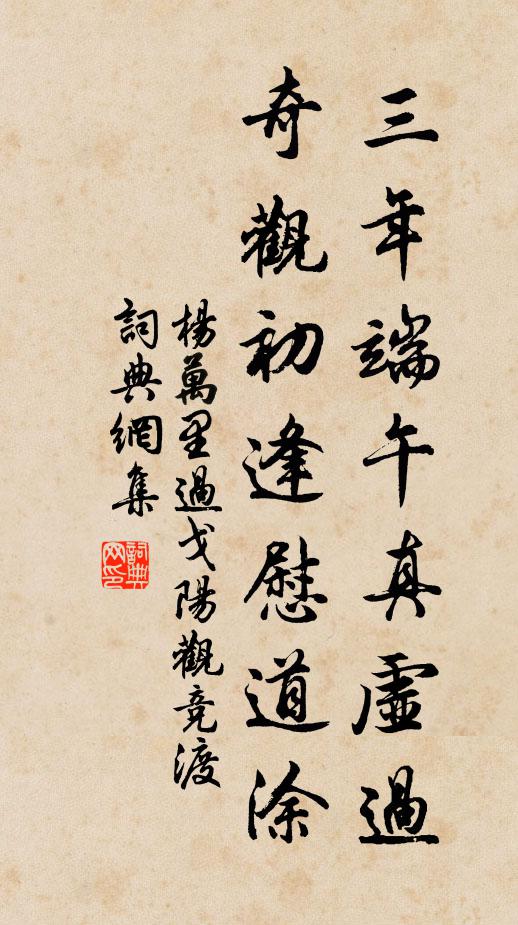 三年端午真虛過
奇觀初逢慰道涂
楊萬里過戈陽觀竞渡
詞典網集
詞典网印